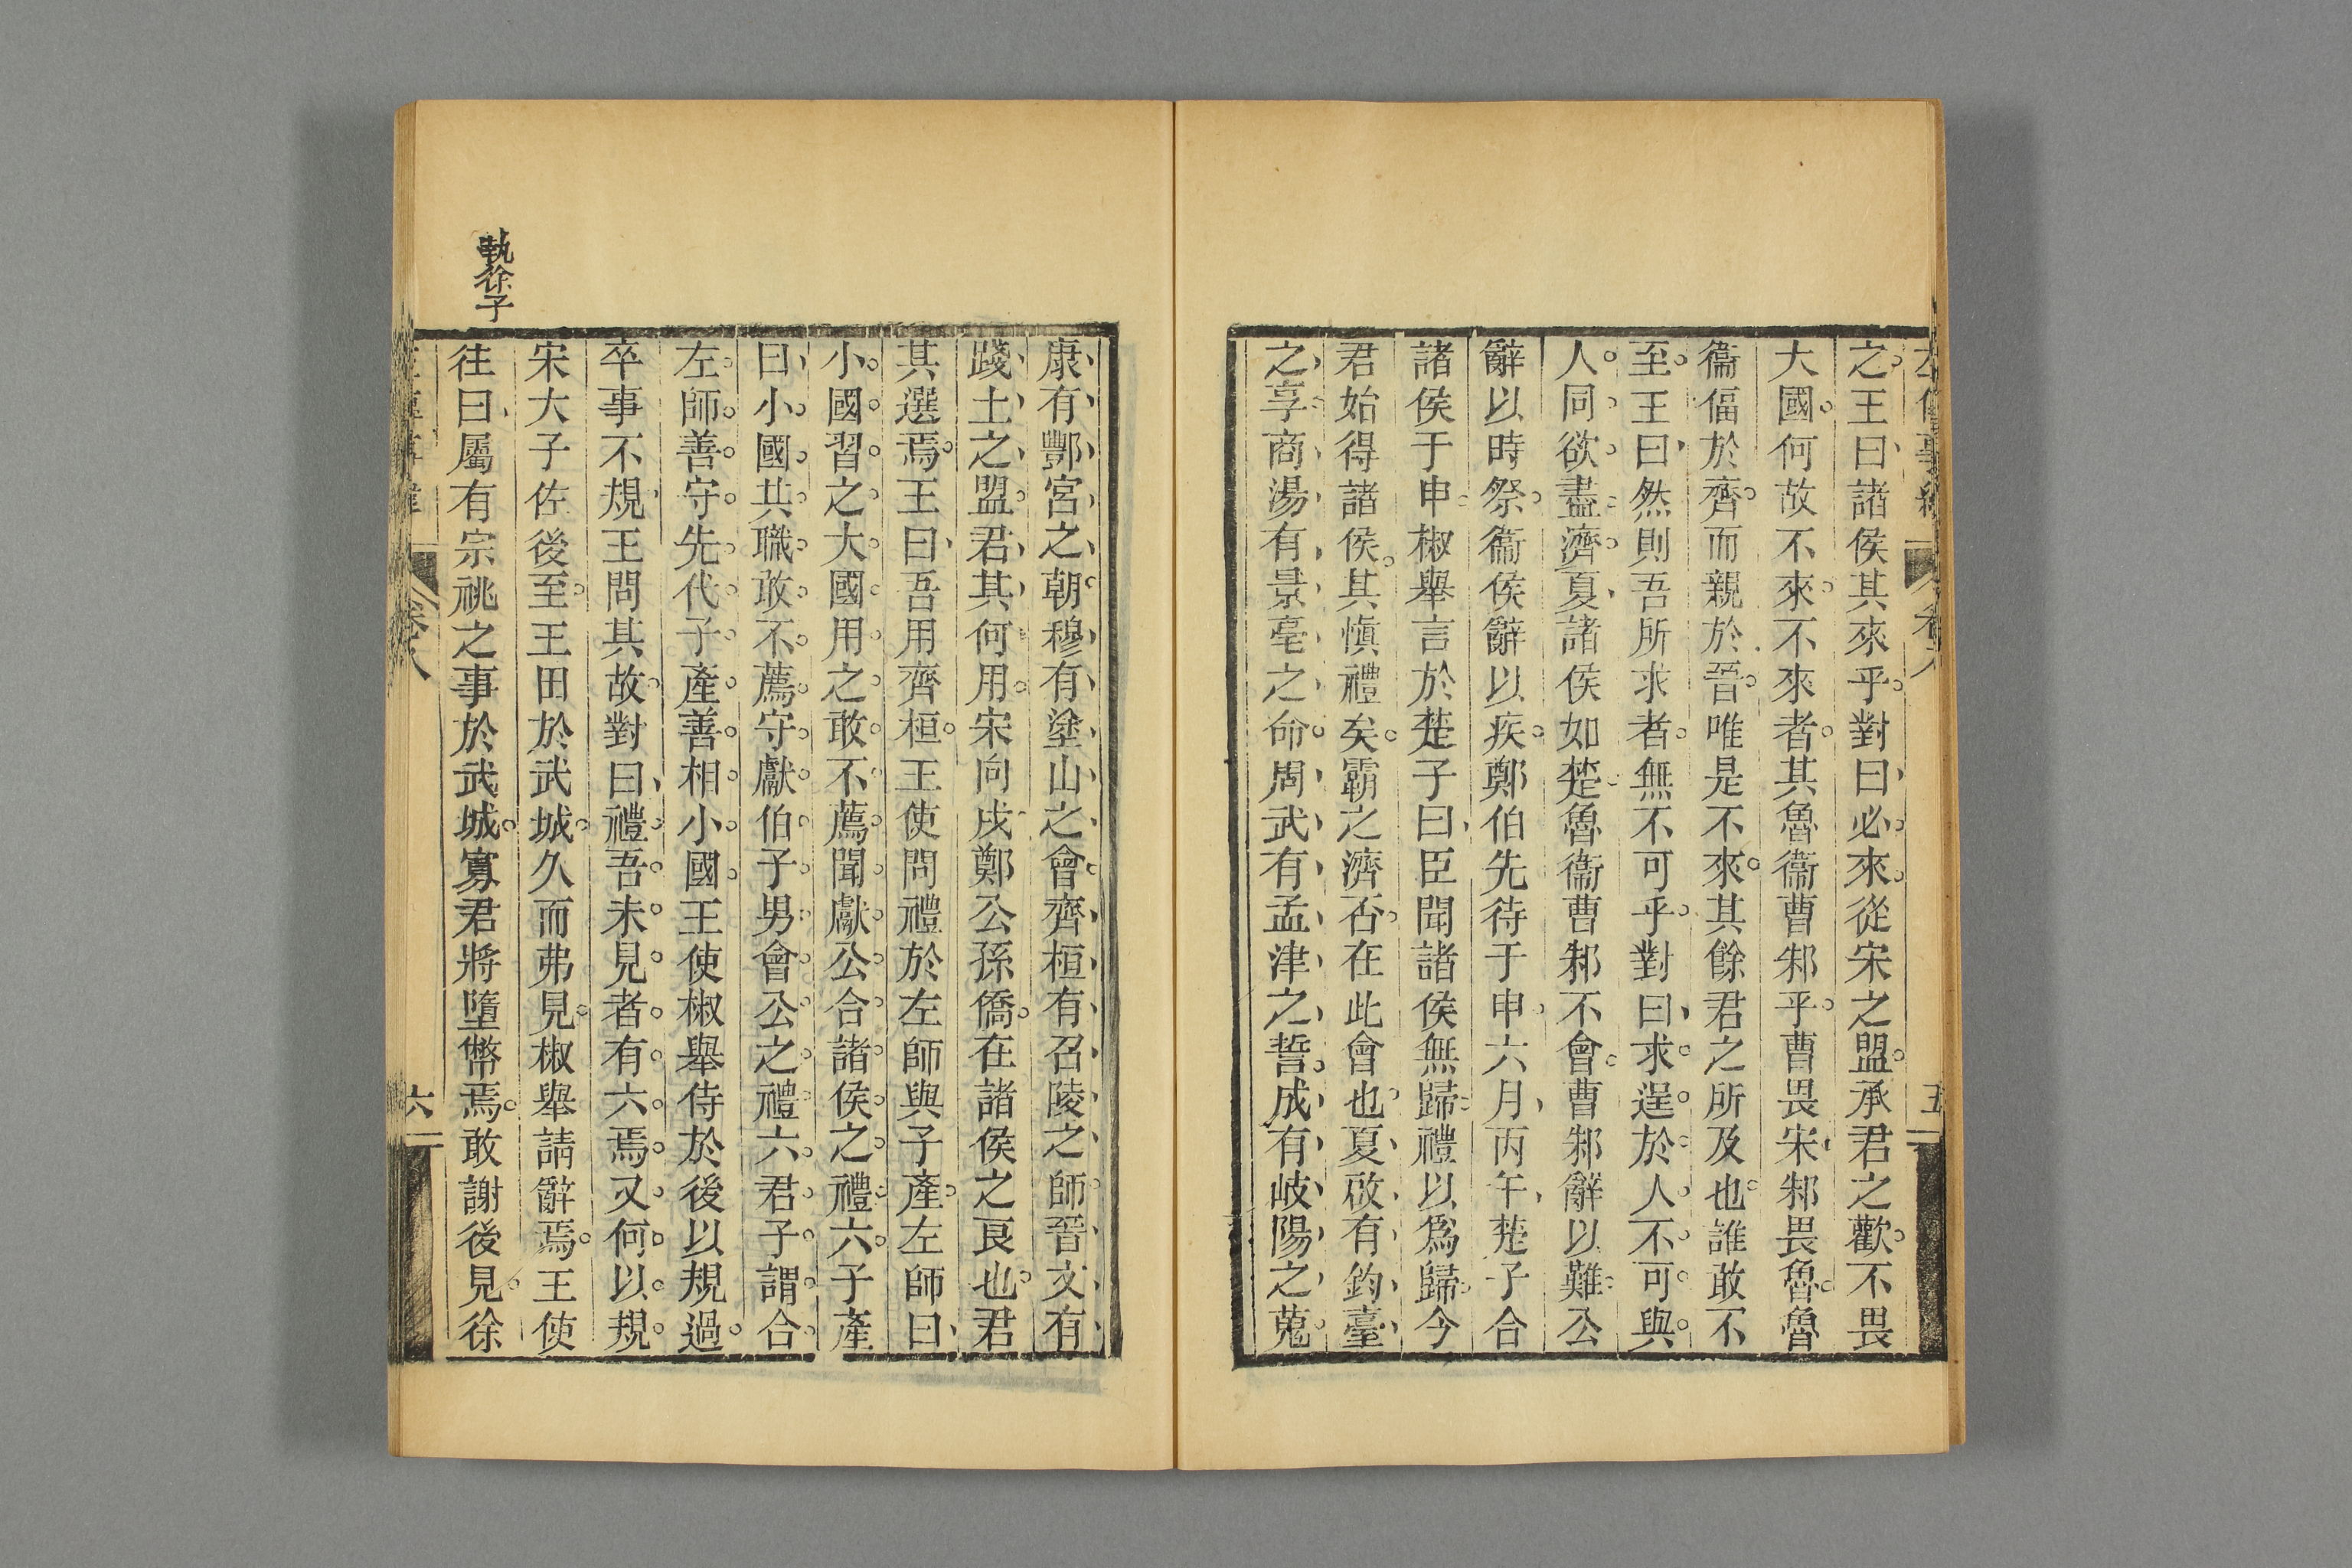 之王曰諸侯其來乎對曰必來從宋之盟承君之歡不畏
大國何故不來不來者其魯衞曹邾乎曹畏宋邾畏魯魯
衞偪於齊而親於晉唯是不來其餘君之所及也誰敢不
至王曰然則吾所求者無不可乎對曰求逞於人不可與
人同欲盡濟夏諸侯如楚魯衞曹邾不會曹邾辭以難公
辭以時祭衞侯辭以疾鄭伯先待于申六月丙午楚子合
諸侯于申椒舉言於楚子曰臣聞諸侯無歸禮以爲歸今
君始得諸侯其愼禮矣霸之濟否在此會也夏啟有鈞臺
之享商湯有景亳之命周武有孟津之誓成有岐陽之蒐
卷八
五
康有酆宮之朝穆有塗山之會齊桓有召陵之師晉文有
踐土之盟君其何用宋向戌鄭公孫僑在諸侯之良也君
其選焉王曰吾用齊桓王使問禮於左師與子產左師曰
小國習之大國用之敢不薦聞獻公合諸侯之禮六子產
曰小國共職敢不薦守獻伯子男會公之禮六君子謂合
左師善守先代子產善相小國王使椒舉侍於後以規過
卒事不規王問其故對曰禮吾未見者有六焉又何以規
宋大子佐後至王田於武城久而弗見椒舉請辭焉王使
往曰屬有宗祧之事於武城寡君將墮幣焉敢謝後見徐
執徐子
卷八
六